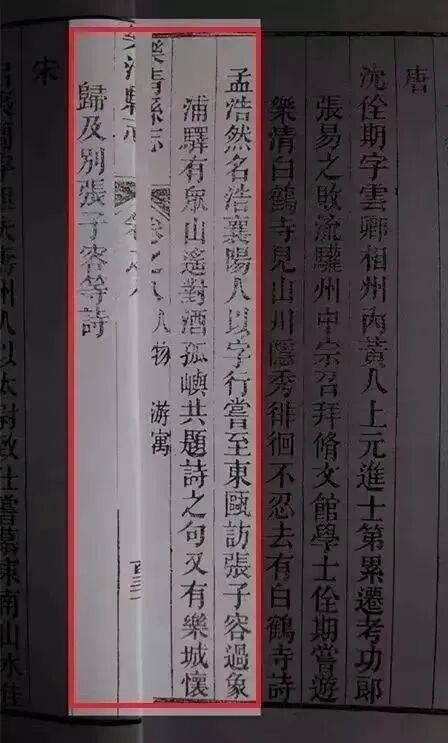 唐
沈佺期字雲卿相州內黃人上元進士第累遷考功郎
張易之敗流驩州中宗召拜脩文館學士佺期嘗遊
樂清白鶴寺見山川隱秀徘徊不忍去有白鶴寺詩
孟浩然名浩襄陽人以字行嘗至東甌訪張子容過象
浦驛有眾山遙對酒孤嶼共題詩之句又有樂城懷
樂清縣志 卷之八 人物 游寓
樂清縣志
歸及別張子容等詩
宋
州人以太尉致仕嘗慕東南山水佳